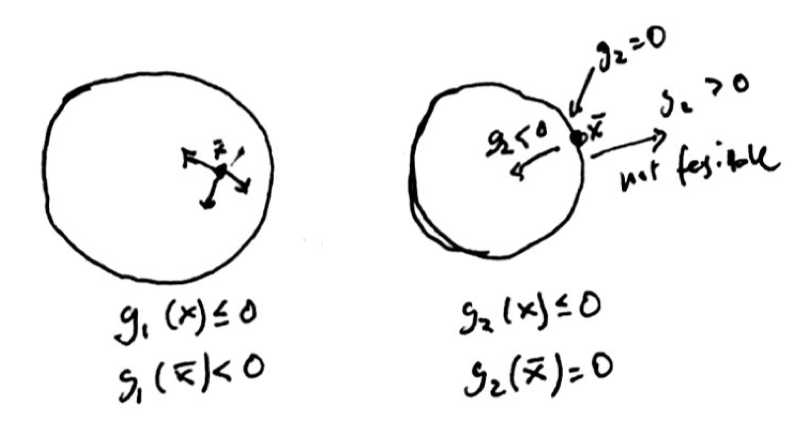 x̄
g₁(x) ≤ 0
g₁(x̄) < 0
g₂ = 0
g₂ > 0
g₂ < 0
x̄
not fesible
g₂(x) ≤ 0
g₂(x̄) = 0